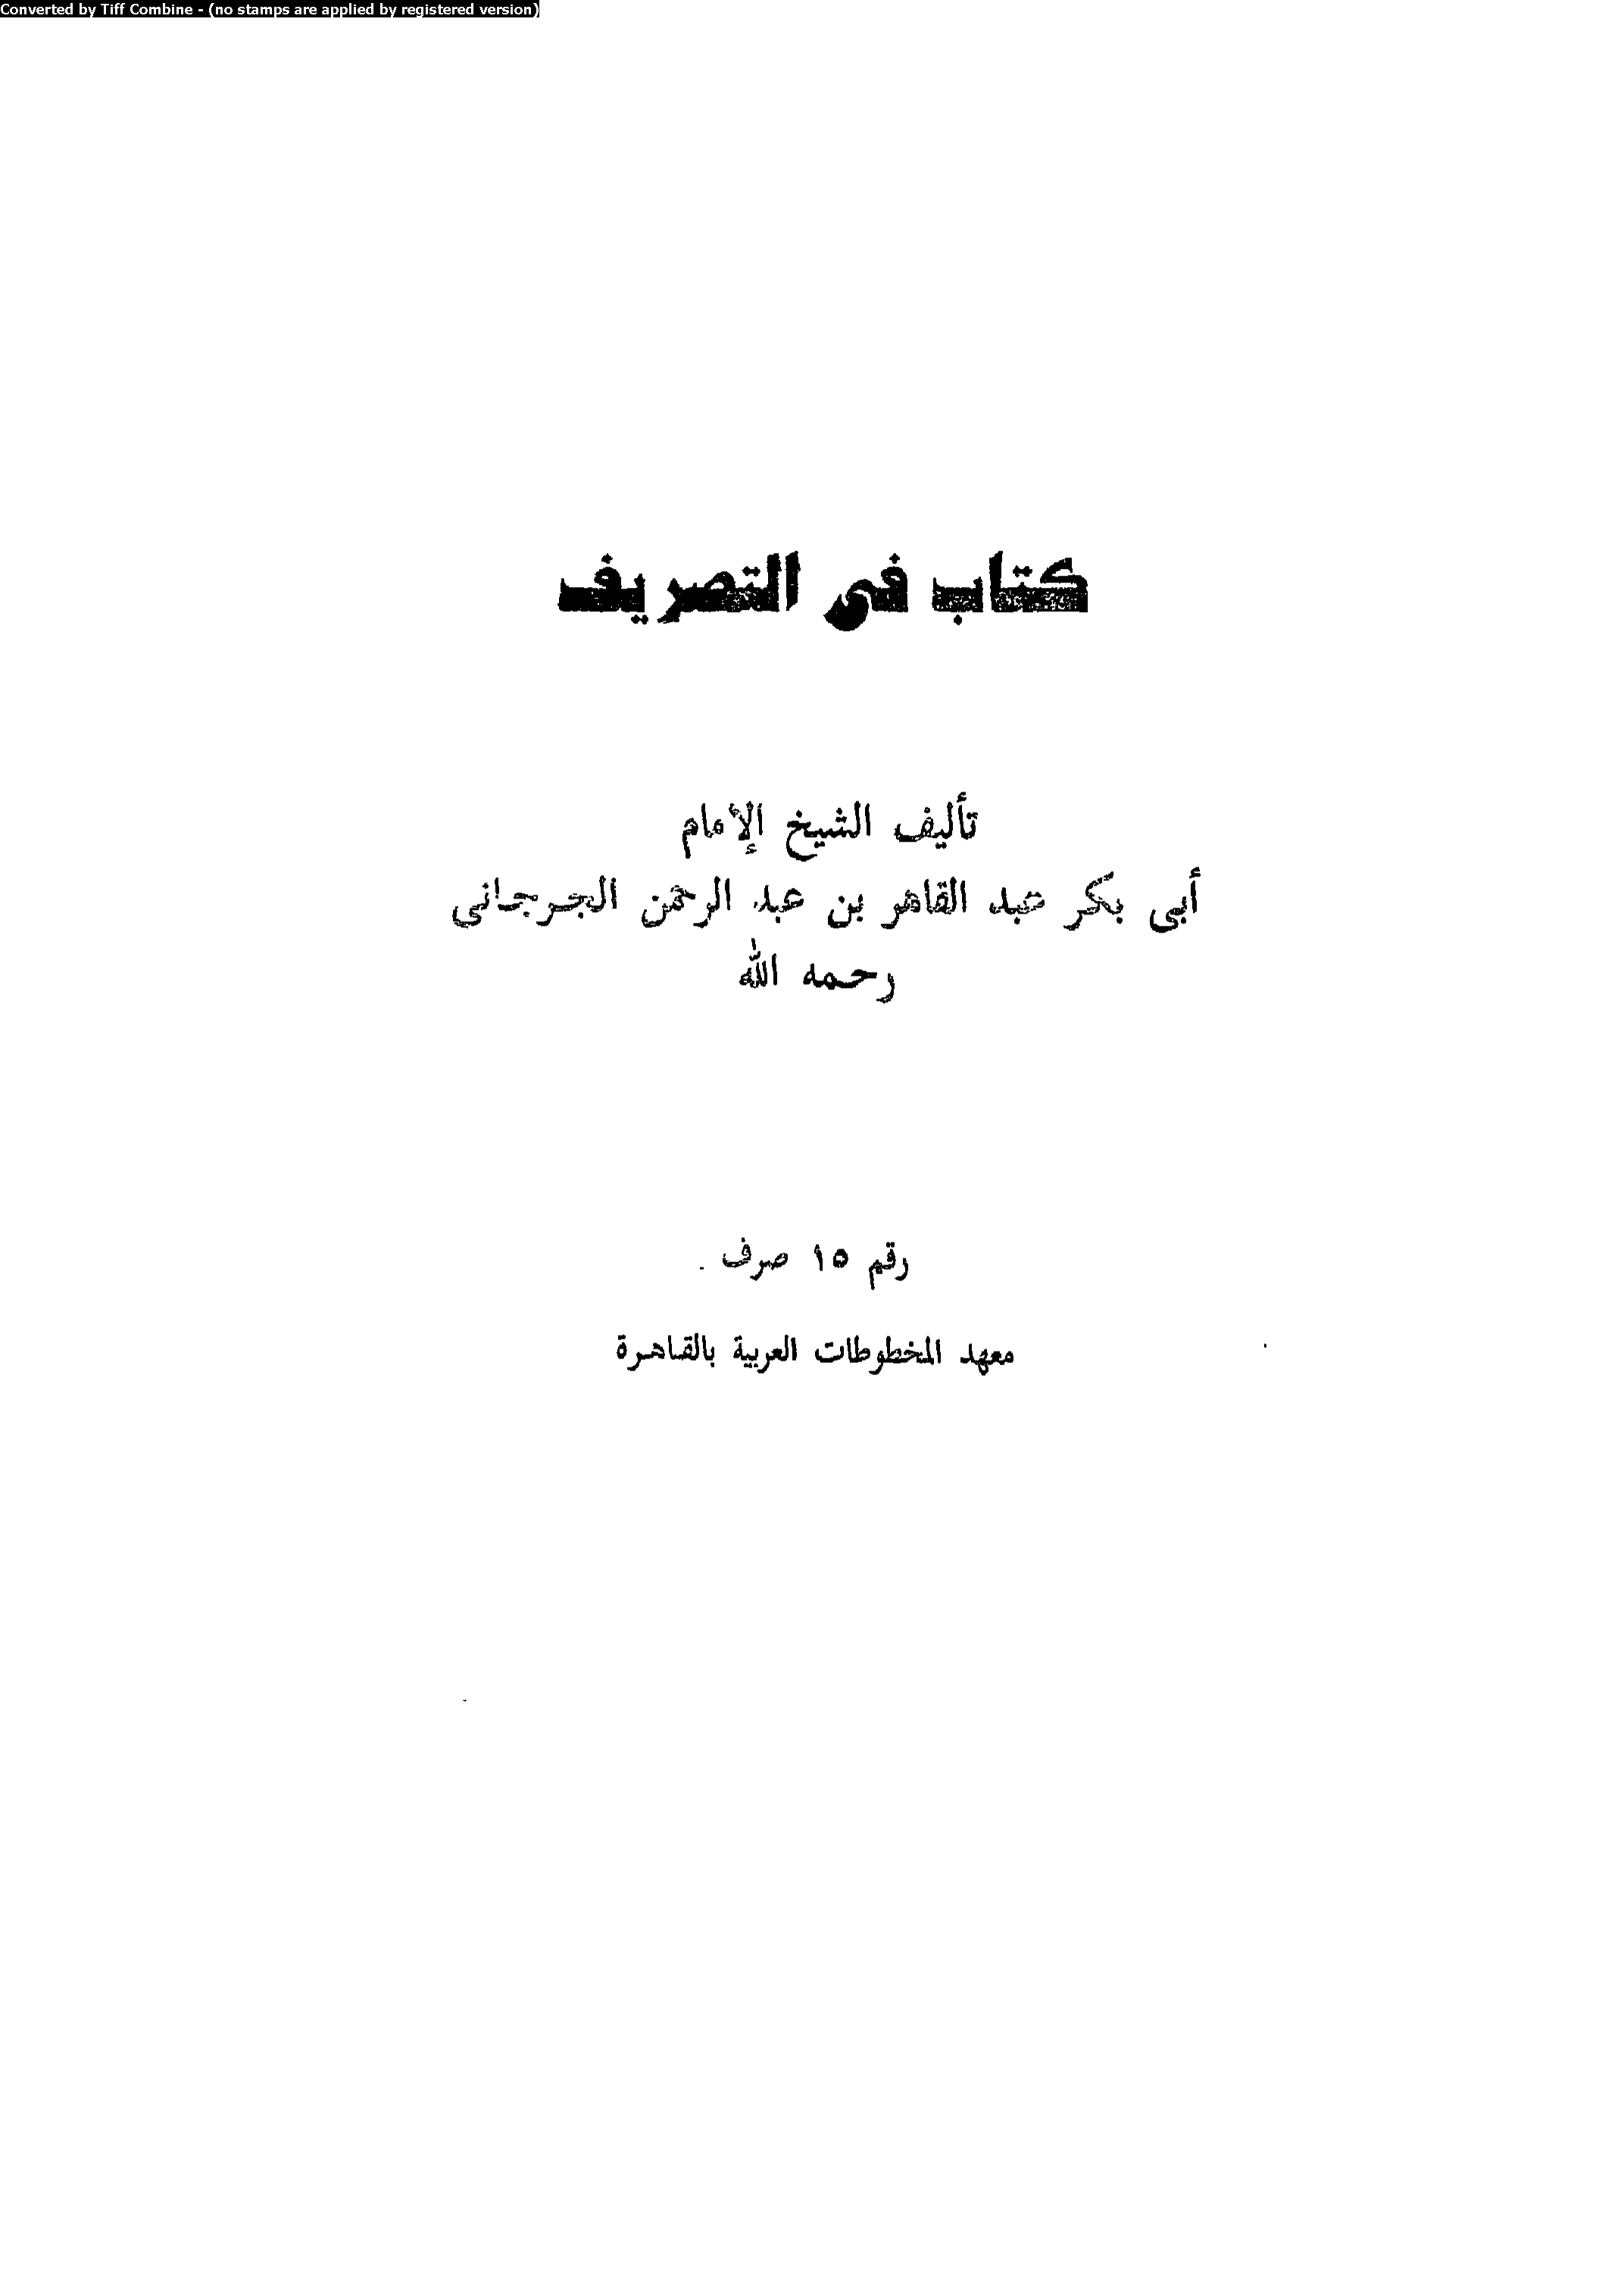 Converted by Tiff Combine - (no stamps are applied by registered version)
كتاب فى التصريف
تأليف الشيخ الإمام
أبى بكر عبد القاهر بن عبد الرحمن الجرجانى
رحمه الله
رقم ١٥ صرف .
معهد المخطوطات العربية بالقاهرة